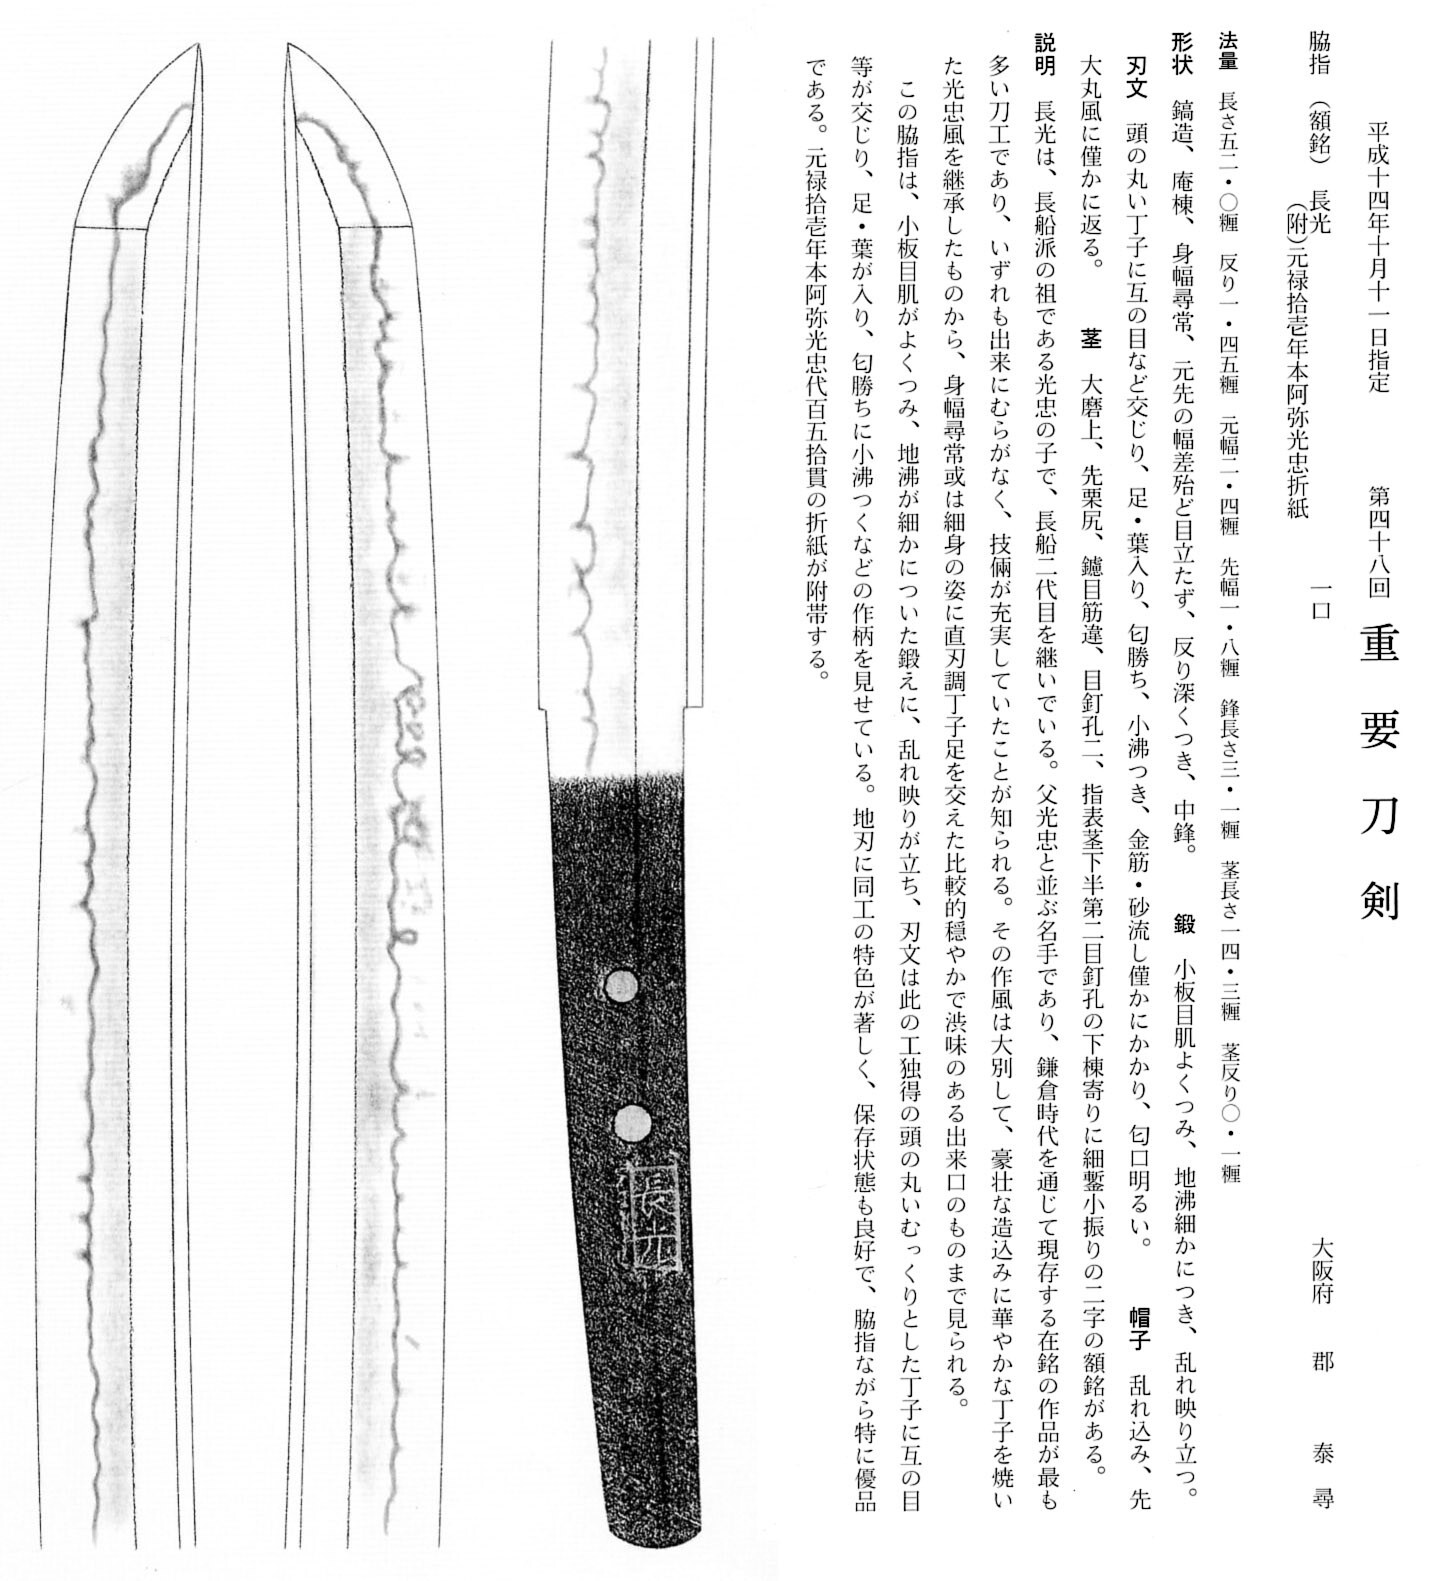 平成十四年十月十一日指定　第四十八回　重要刀剣
脇指　（額銘）　長光　一口　大阪府　郡　泰尋
（附）元禄拾壱年本阿弥光忠折紙
法量　長さ五二・〇糎　反り一・四五糎　元幅二・四糎　先幅一・八糎　鋒長さ三・一糎　茎長さ一四・三糎　茎反り〇・一糎
形状　鎬造、庵棟、身幅尋常、元先の幅差殆ど目立たず、反り深くつき、中鋒。　鍛　小板目肌よくつみ、地沸細かにつき、乱れ映り立つ。
刃文　頭の丸い丁子に互の目など交じり、足・葉入り、匂勝ち、小沸つき、金筋・砂流し僅かにかかり、匂口明るい。　帽子　乱れ込み、先
大丸風に僅かに返る。　茎　大磨上、先栗尻、鑢目筋違、目釘孔二、指表茎下半第二目釘孔の下棟寄りに細鏨小振りの二字の額銘がある。
説明　長光は、長船派の祖である光忠の子で、長船二代目を継いでいる。父光忠と並ぶ名手であり、鎌倉時代を通じて現存する在銘の作品が最も
多い刀工であり、いずれも出来にむらがなく、技倆が充実していたことが知られる。その作風は大別して、豪壮な造込みに華やかな丁子を焼い
た光忠風を継承したものから、身幅尋常或は細身の姿に直刃調丁子足を交えた比較的穏やかで渋味のある出来口のものまで見られる。
この脇指は、小板目肌がよくつみ、地沸が細かについた鍛えに、乱れ映りが立ち、刃文は此の工独得の頭の丸いむっくりとした丁子に互の目
等が交じり、足・葉が入り、匂勝ちに小沸つくなどの作柄を見せている。地刃に同工の特色が著しく、保存状態も良好で、脇指ながら特に優品
である。元禄拾壱年本阿弥光忠代百五拾貫の折紙が附帯する。
長光